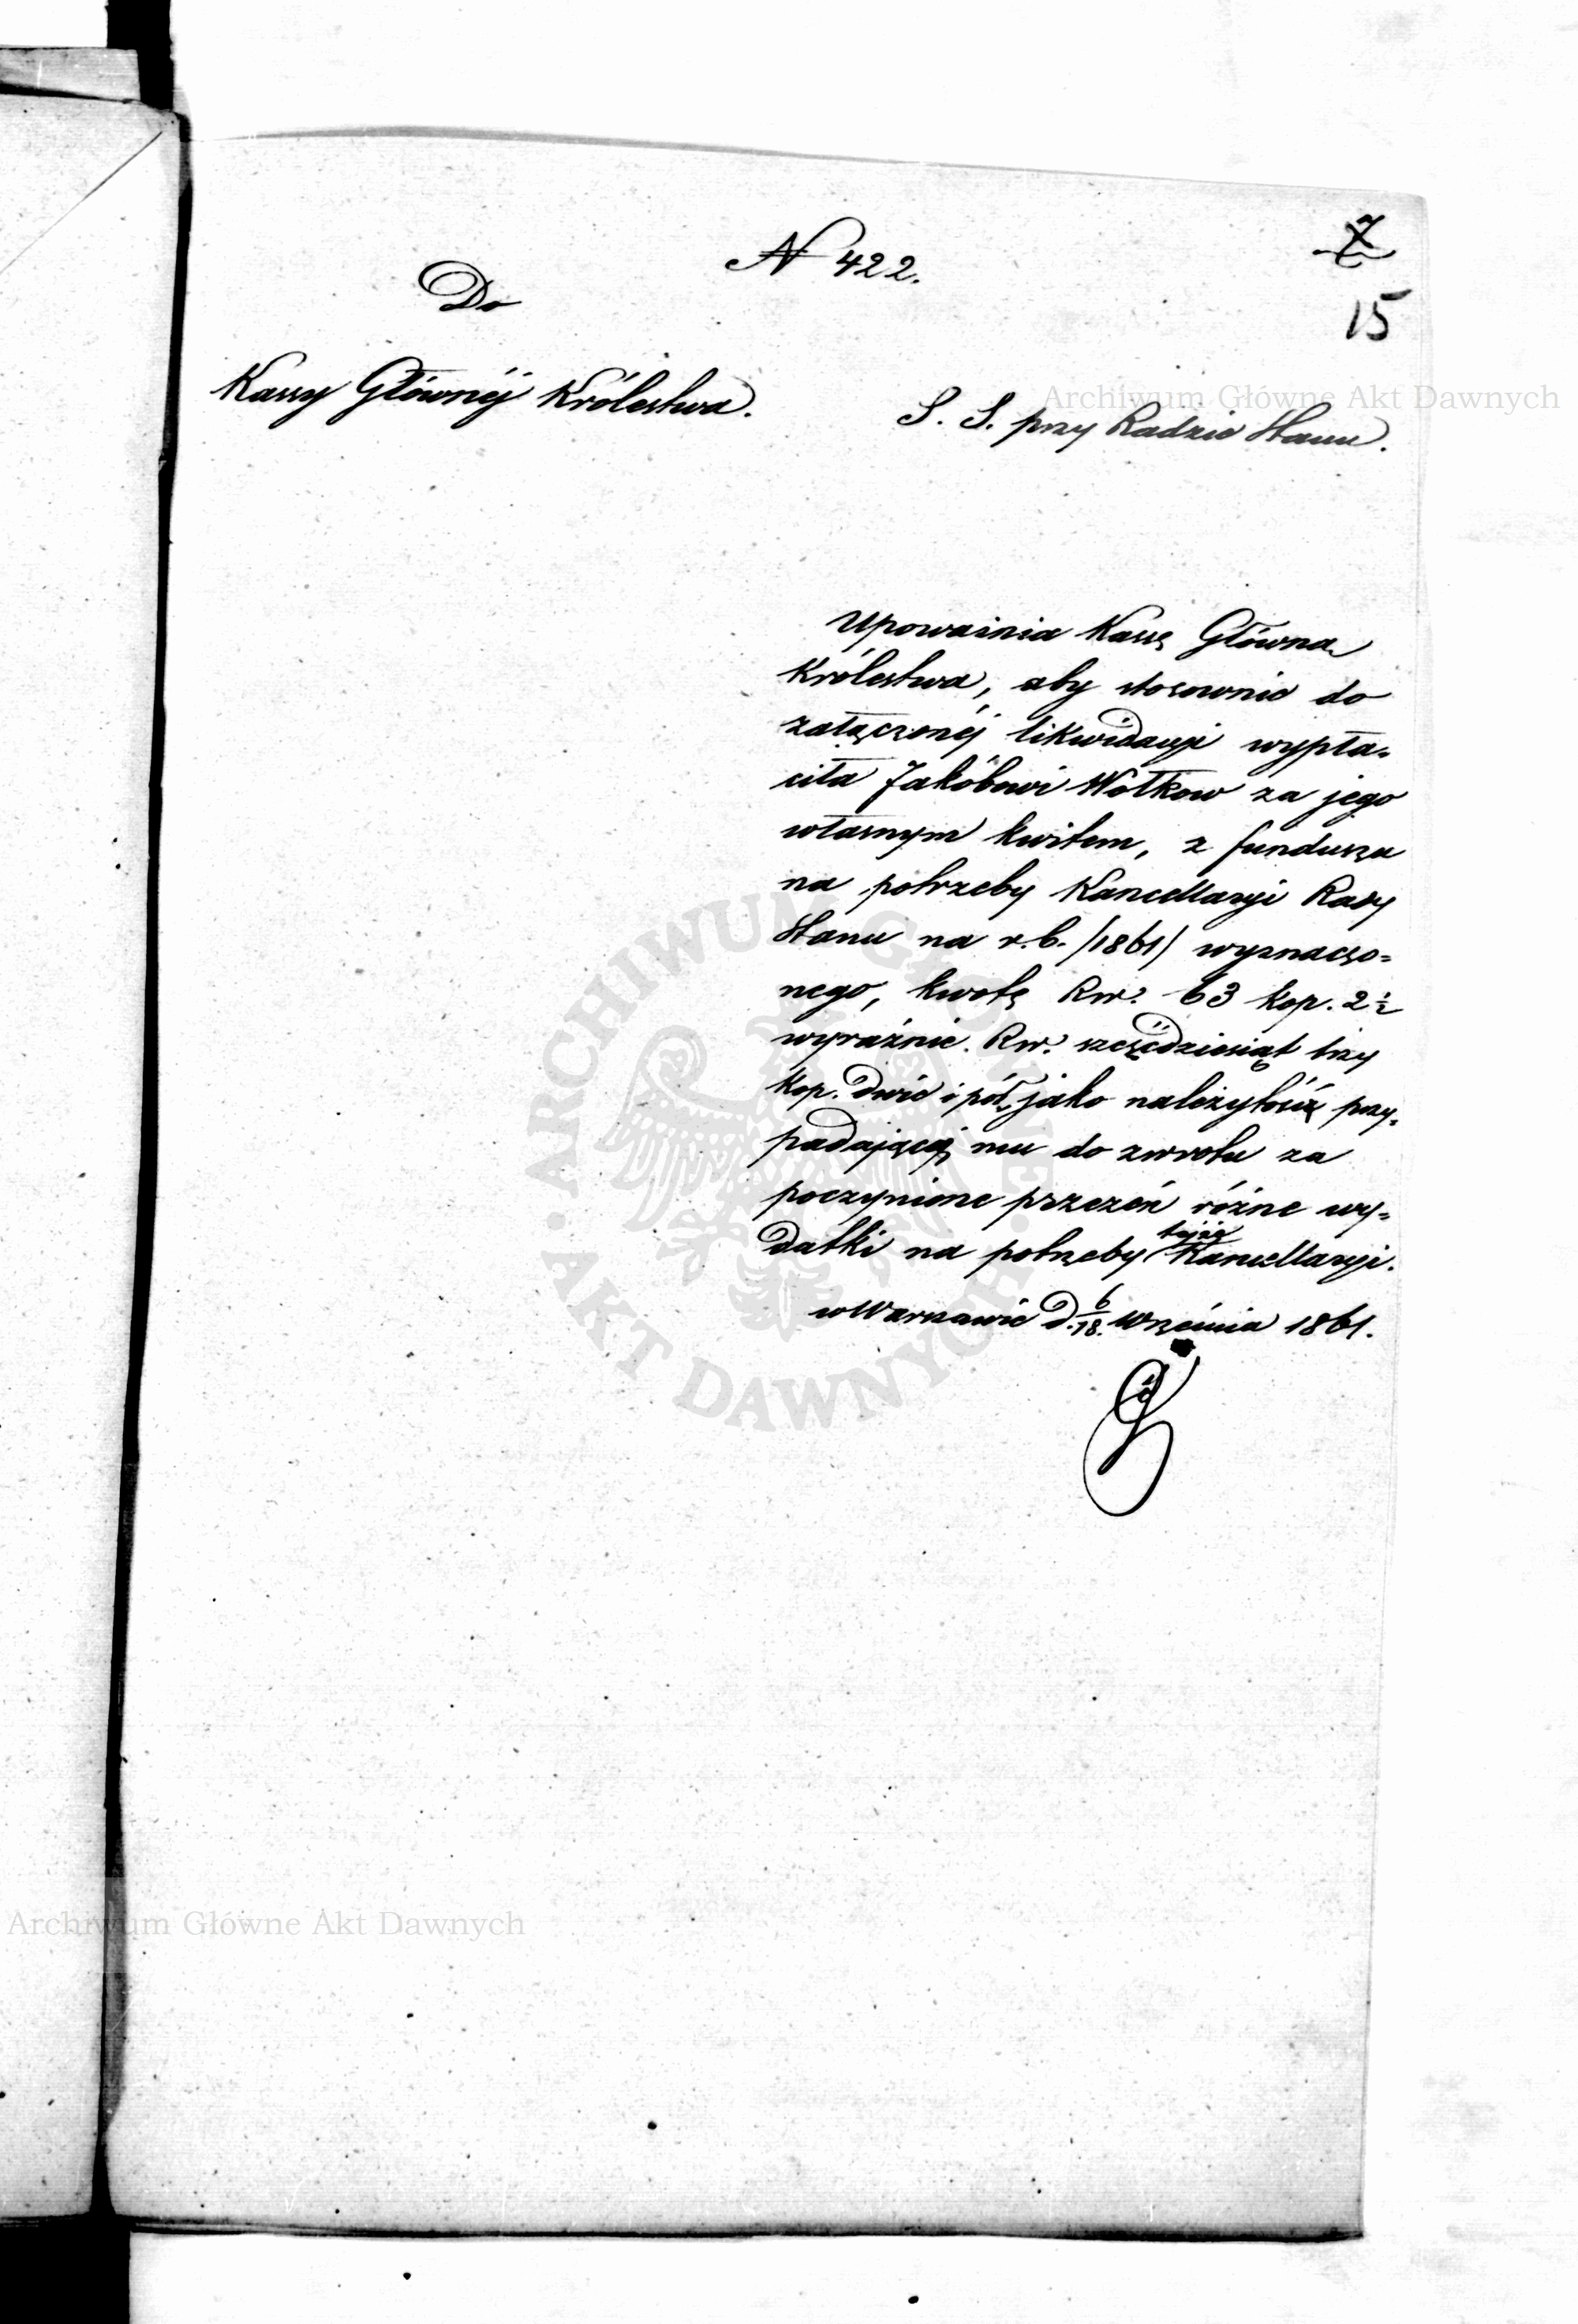 N 422.
7
15
Do
Kassy Głównéj Królestwa.
S. S. przy Radzie Stanu.
Upoważnia Kassę Główną
Królestwa, aby stosownie do
załączonéj likwidacyi wypła=
ciła Jakóbowi Wołkow za jego
własnym kwitem, z funduszu
na potrzeby Kancellaryi Rady
Stanu na r. b. /1861/ wyznaczo=
nego, kwotę Rsr. 63 kop. 2 ½
wyraźnie. Rsr. sześćdziesiąt trzy
kop. dwie i pół, jako należytość przy=
padającą mu do zwrotu za
poczynione przezeń różne wy=
datki na potrzeby tejże Kancellaryi.
w Warszawie d. 6/18. Września 1861.
Archiwum Główne Akt Dawnych
ARCHIWUM GŁÓWNE · AKT DAWNYCH ·
Archiwum Główne Akt Dawnych